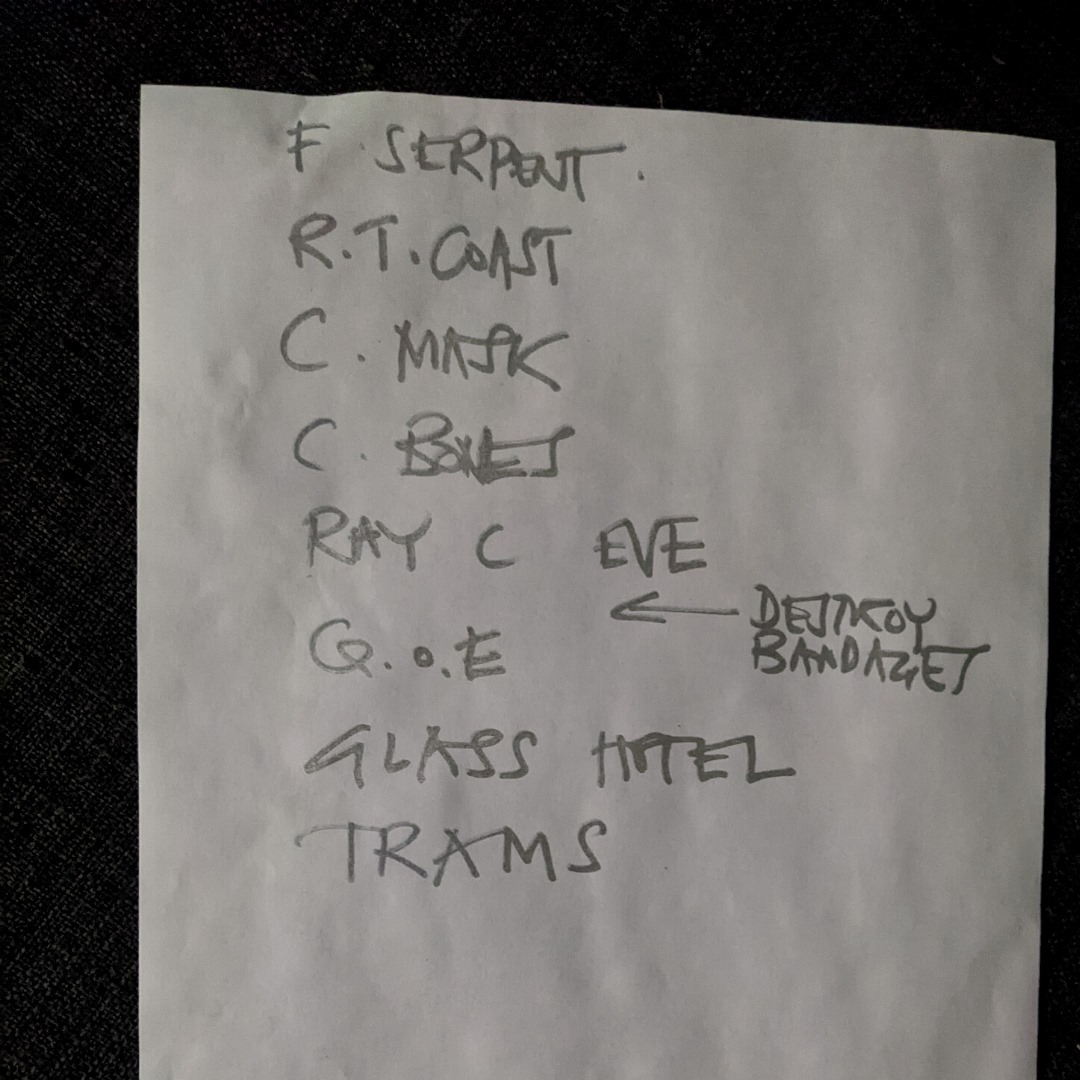 F. SERPENT.
R.T. COAST
C. MASK
C. BONES
RAY C EVE
← DESTROY
BANDAGES
Q.o.E
GLASS HOTEL
TRAMS